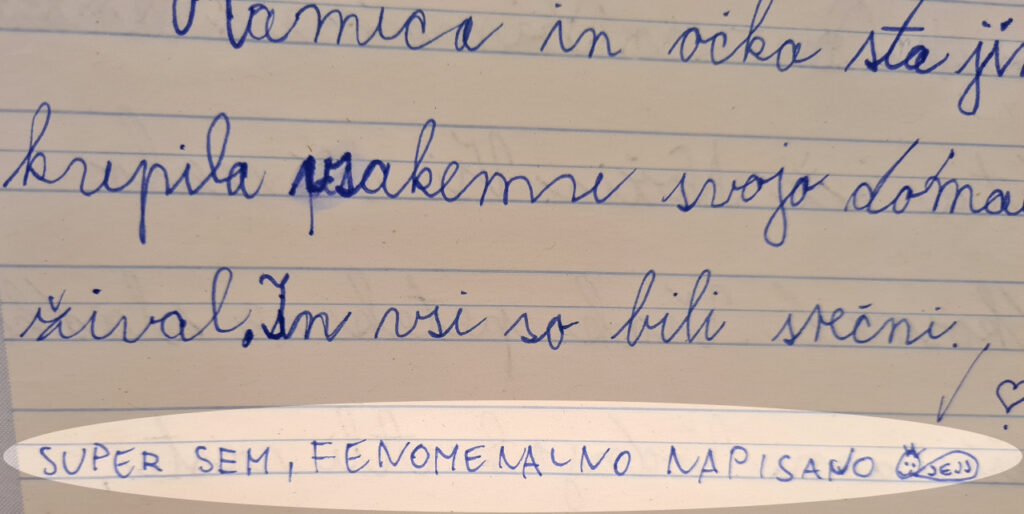 Mamica in očka sta ji
krepila vsakemu svojo doma
žival. In vsi so bili srečni.
SUPER SEM, FENOMENALNO NAPISANO JEJJ